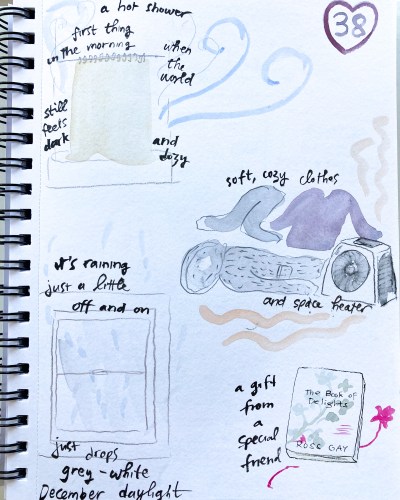 a hot shower
first thing
in the morning
when
the
world
still
feels
dark
and
dozy
38
soft, cozy clothes
and space heater
it's raining
just a little
off and on
just drops
grey-white
December daylight
a gift
from
a
special
friend
The Book of
Delights
ROSS GAY